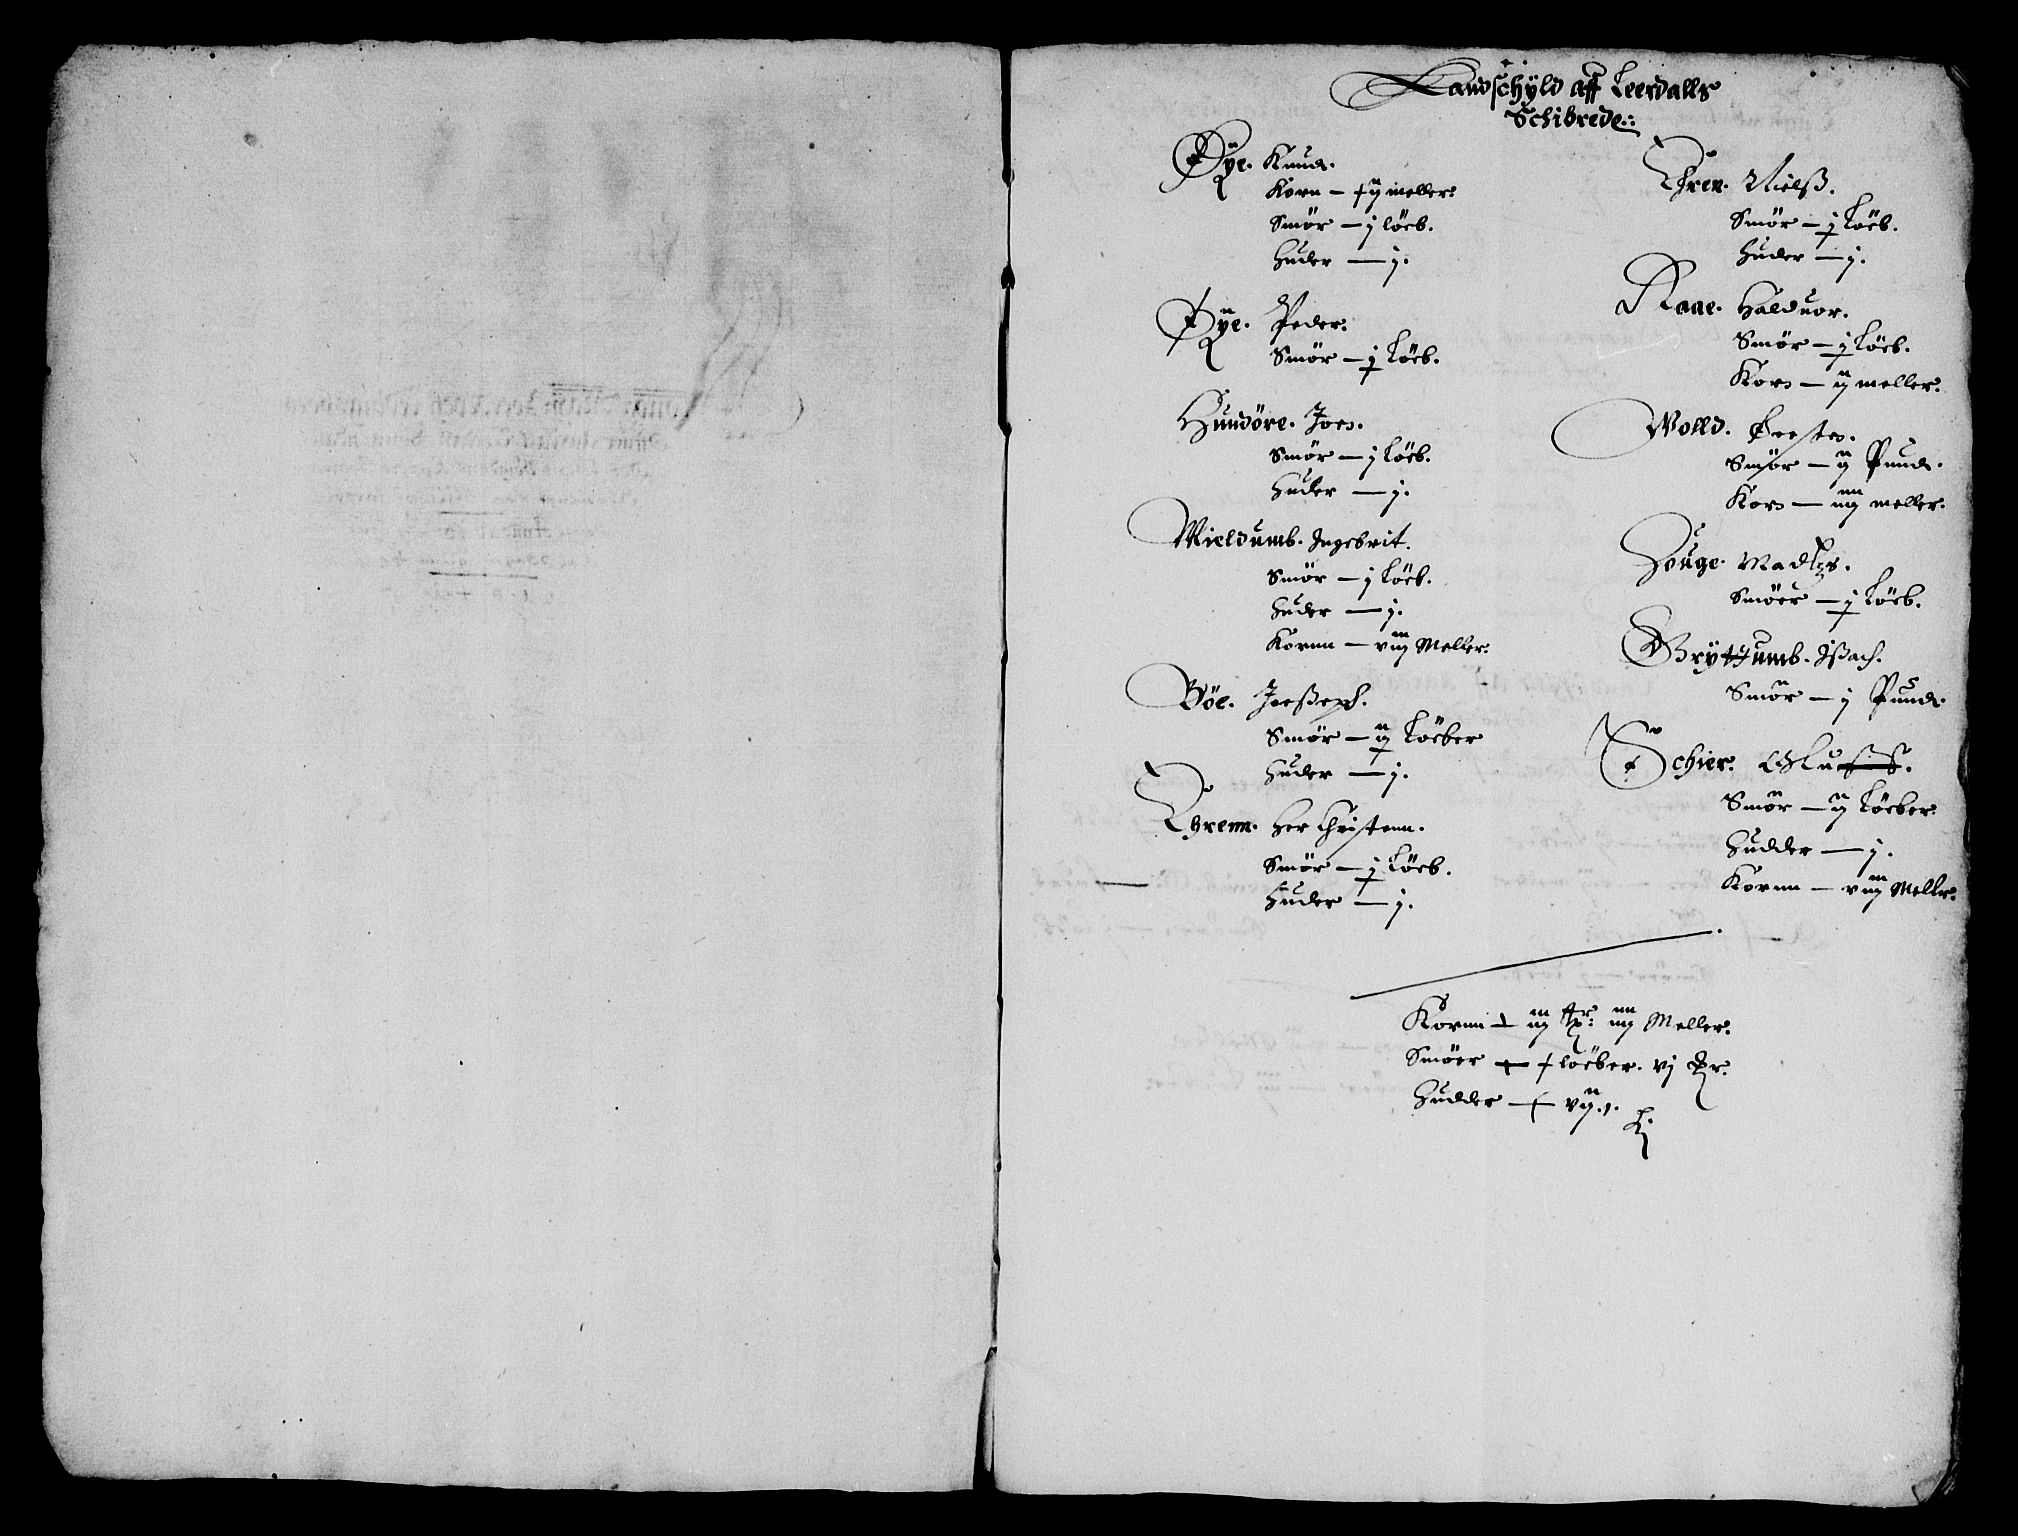 Landschyld aff Leerdalls
Schibrede.
Øye. Knud.
Korn — ij meller.
Smör — j löeb.
Huder — j.
Øye. Peder.
Smör — j Löeb.
Hundöre. Joen.
Smör — j Löeb.
Huder — j.
Mieldumb. Ingebrit.
Smör — j Löeb.
Huder — j.
Kornn — viij Meller.
Böe. Joeßeph.
Smör — ij Löeber
Huder — j.
Ehrenn. Her Christenn.
Smör — j Löeb.
Huder — j.
Ehren. Nielß.
Smör — j Löeb.
Huder — j.
Raae. Halduor.
Smör — j Löeb.
Korn — ij meller.
Wolld.
Smör — ij Pund.
Korn — iiij meller.
Houge. Madtzs.
Smöer — j Löeb.
Gryttumb. Ißach.
Smör — j Pund.
Schier.
Smör — ij Löeber.
Hudder — j.
Kornn — viij Meller.
Kornn — iij iiij Meller.
Smöer — löeber. vj
Hudder — vij.